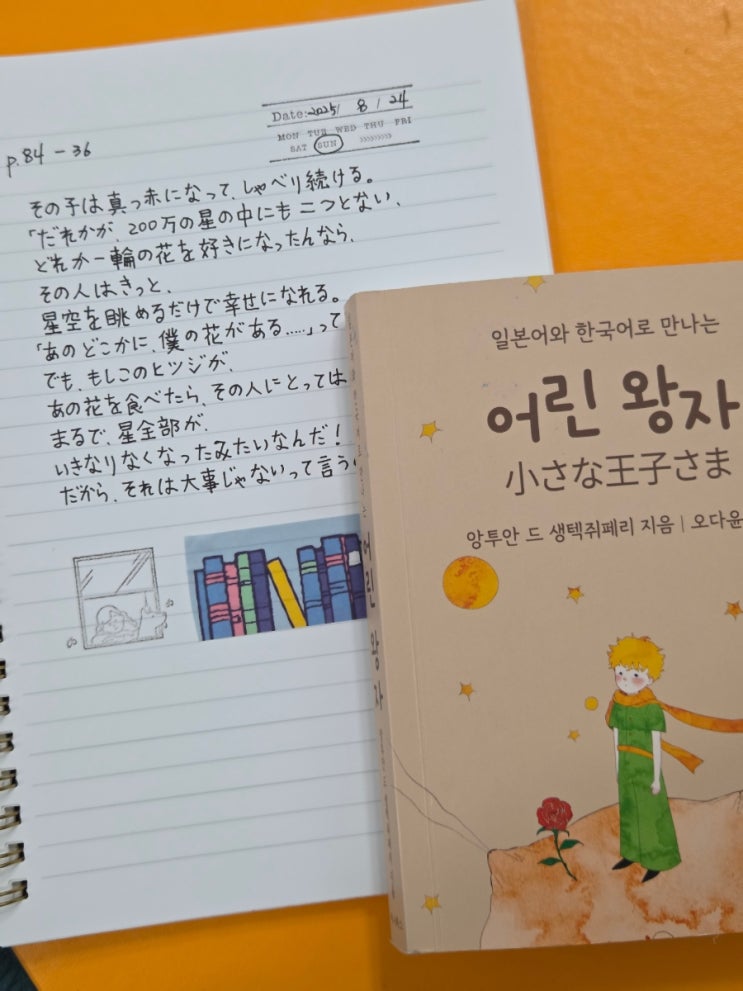 Date: 2025/ 8 / 24
MON TUE WED THU FRI
SAT SUN
p.84 - 36
その子は真っ赤になって、しゃべり続ける。
「だれかが、200万の星の中にも二つとない、
どれか一輪の花を好きになったんなら、
その人はきっと、
星空を眺めるだけで幸せになれる。
「あのどこかに、僕の花がある.....」って
でも、もしこのヒツジが、
あの花を食べたら、その人にとっては
まるで、星全部が、
いきなりなくなったみたいなんだ!
だから、それは大事じゃないって言う
일본어와 한국어로 만나는
어린 왕자
小さな王子さま
앙투안 드 생텍쥐페리 지음 | 오다윤
어린 왕자